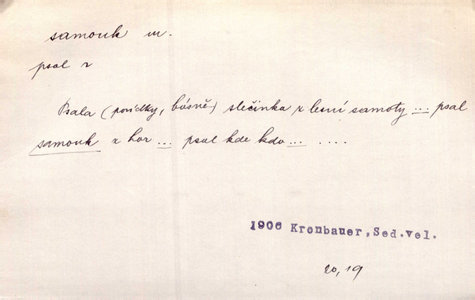 samouk m.
psal z
Psala (povídky, básně) slečinka z lesní samoty ... psal
samouk z hor ... psal kde kdo ... ....
1906 Kronbauer, Sed.vel.
20, 19